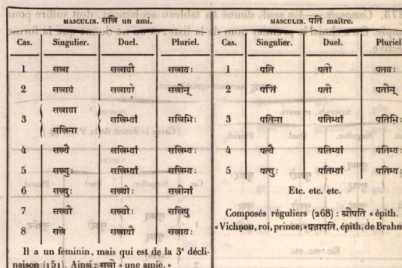 MASCULIN. सखि un ami.
Cas. Singulier. Duel. Pluriel.
1 सखा सखायौ सखायः
2 सखायं सखायौ सखीन्
3 सख्या सखिना सखिभ्यां सखिभिः
4 सख्ये सखिभ्यां सखिभ्यः
5 सख्युः सखिभ्यां सखिभ्यः
6 सख्युः सख्योः सखीनां
7 सख्यौ सख्योः सखिषु
8 सखे सखायौ सखायः
Il a un feminin, mais qui est de la 3e décli-
naison (151). Ainsi: सखी « une amie. »
MASCULIN. पति maître.
Cas. Singulier. Duel. Pluriel.
1 पति पती पतयः
2 पतिं पती पतीन्
3 पतिना पतिभ्यां पतिभिः
4 पत्ये पतिभ्यां पतिभ्यः
5 पत्युः पतिभ्यां पतिभ्यः
Etc. etc. etc.
Composés réguliers (268): श्रीपति « épith.
« Vichnou, roi, prince; » प्रजापति, épith. de Brahm